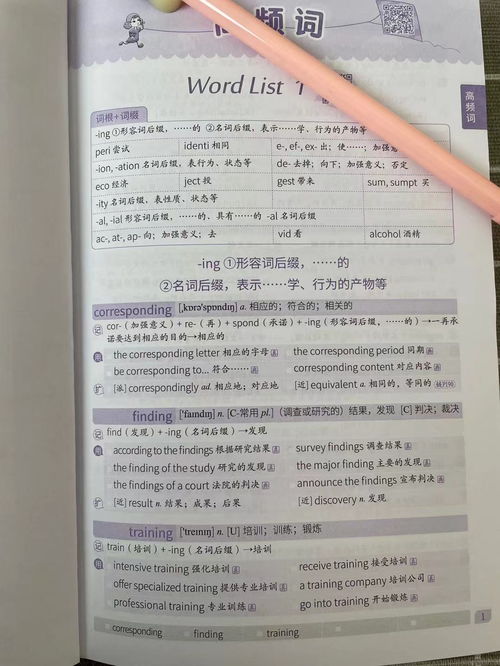 高频词
Word List 1
高频词
词根+词缀
-ing ①形容词后缀，……的 ②名词后缀，表示……学、行为的产物等
peri 尝试 identi 相同 e-, ef-, ex- 出；使……；加强意
-ion, -ation 名词后缀，表行为、状态等 de- 去掉；向下；加强意义；否定
eco 经济 ject 投 gest 带来 sum, sumpt 买
-ity 名词后缀，表性质、状态等
-al, -ial 形容词后缀，……的、具有……的 -al 名词后缀
ac-, at-, ap- 向；加强意义；去 vid 看 alcohol 酒精
-ing ①形容词后缀，……的
②名词后缀，表示……学、行为的产物等
corresponding [ˌkɒrəˈspɒndɪŋ] a. 相应的；符合的；相关的
记 cor-（加强意义）+ re-（再）+ spond（承诺）+ -ing（形容词后缀，……的）→一再承
诺要达到相应的目的→相应的
the corresponding letter 相应的字母 the corresponding period 同期
be corresponding to... 符合…… corresponding content 对应内容
扩 [派] correspondingly ad. 相应地；对应地 [近] equivalent a. 相同的，等同的
finding [ˈfaɪndɪŋ] n. [C-常用 pl.]（调查或研究的）结果，发现 [C] 判决；裁决
记 find（发现）+ -ing（名词后缀）→发现
according to the findings 根据研究结果 survey findings 调查结果
the finding of the study 研究的发现 the major finding 主要的发现
the findings of a court 法院的判决 announce the findings 宣布判决
扩 [近] result n. 结果；成果；后果 [近] discovery n. 发现
training [ˈtreɪnɪŋ] n. [U] 培训；训练；锻炼
记 train（培训）+ -ing（名词后缀）→培训
intensive training 强化培训 receive training 接受培训
offer specialized training 提供专业培训 a training company 培训公司
professional training 专业训练 go into training 开始锻炼
corresponding finding training
1